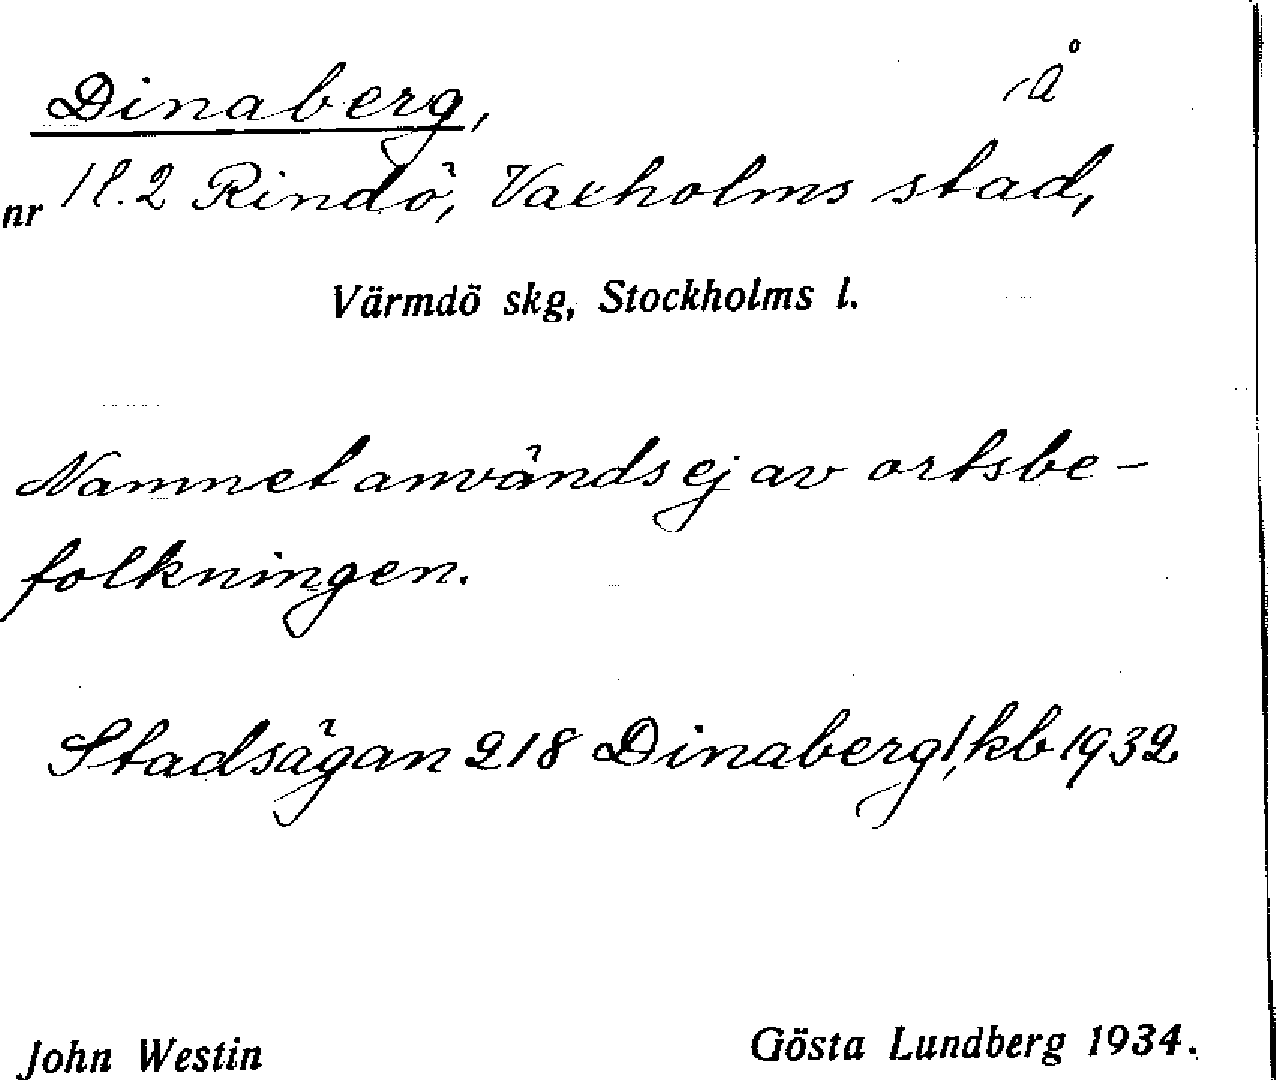 Dinaberg, å
nr 1l.2 Rindö, Vaxholms stad,
Värmdö skg, Stockholms l.
Namnet användes ej av ortsbe-
folkningen.
Stadsägan 218 Dinaberg!, kb 1932
John Westin Gösta Lundberg 1934.